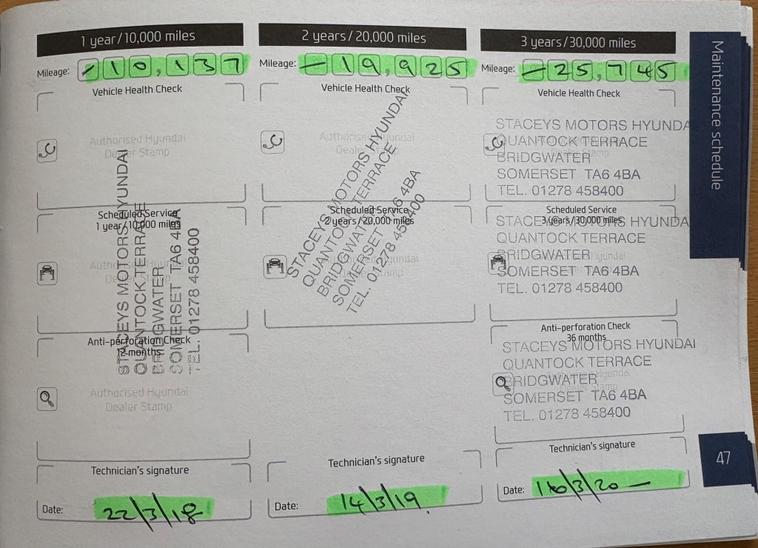 1 year/10,000 miles
Mileage: -10,137
Vehicle Health Check
Authorised Hyundai
Dealer Stamp
Scheduled Service
1 year/10,000 miles
STACEYS MOTORS HYUNDAI
QUANTOCK TERRACE
BRIDGWATER
SOMERSET TA6 4BA
TEL. 01278 458400
Anti-perforation Check
12 months
Authorised Hyundai
Dealer Stamp
Technician's signature
Date: 22/3/18
2 years/20,000 miles
Mileage: -19,925
Vehicle Health Check
Authorised Hyundai
Scheduled Service
2 years/20,000 miles
STACEYS MOTORS HYUNDAI
QUANTOCK TERRACE
BRIDGWATER
SOMERSET TA6 4BA
TEL. 01278 458400
Technician's signature
Date: 14/3/19.
3 years/30,000 miles
Mileage: -25,745
Vehicle Health Check
STACEYS MOTORS HYUNDA
QUANTOCK TERRACE
BRIDGWATER
SOMERSET TA6 4BA
TEL. 01278 458400
Scheduled Service
3 years/30,000 miles
STACEYS MOTORS HYUNDA
QUANTOCK TERRACE
BRIDGWATER
SOMERSET TA6 4BA
TEL. 01278 458400
Anti-perforation Check
36 months
STACEYS MOTORS HYUNDAI
QUANTOCK TERRACE
BRIDGWATER
SOMERSET TA6 4BA
TEL. 01278 458400
Technician's signature
Date: 16/3/20 -
Maintenance schedule
47